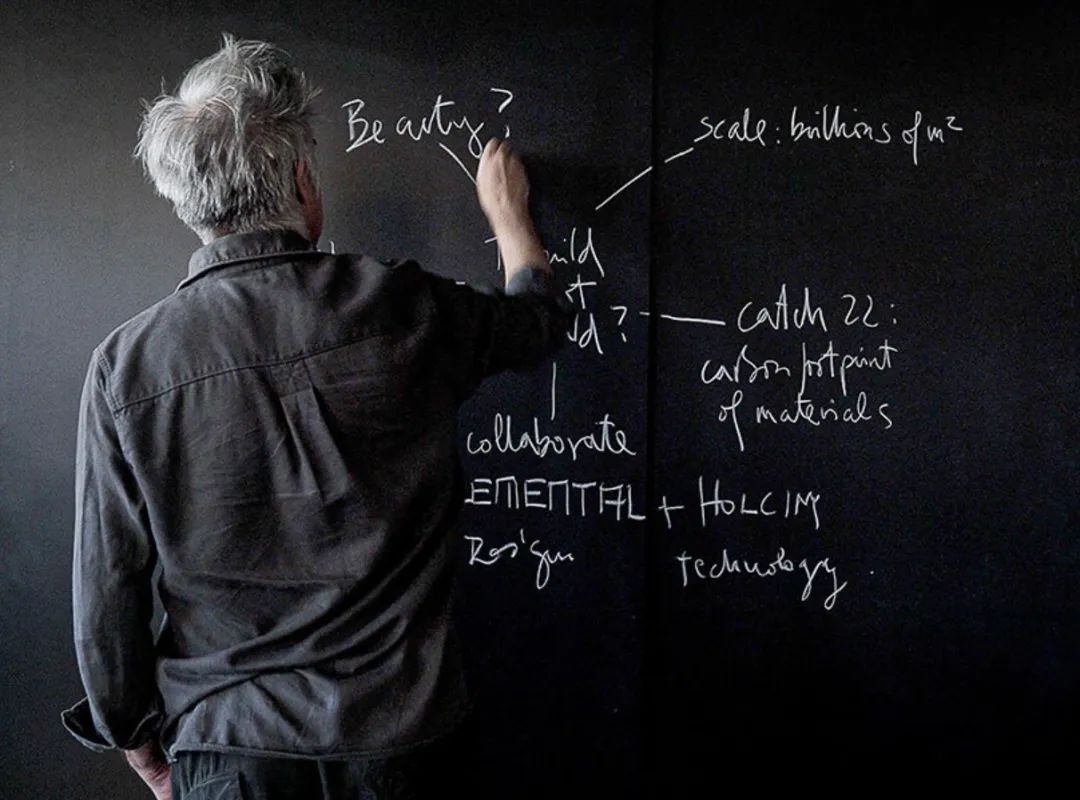 Beauty?
scale: billions of m²
catch 22:
carbon footprint
of materials
collaborate
EMENTAL + HOLCIM
Design
technology.